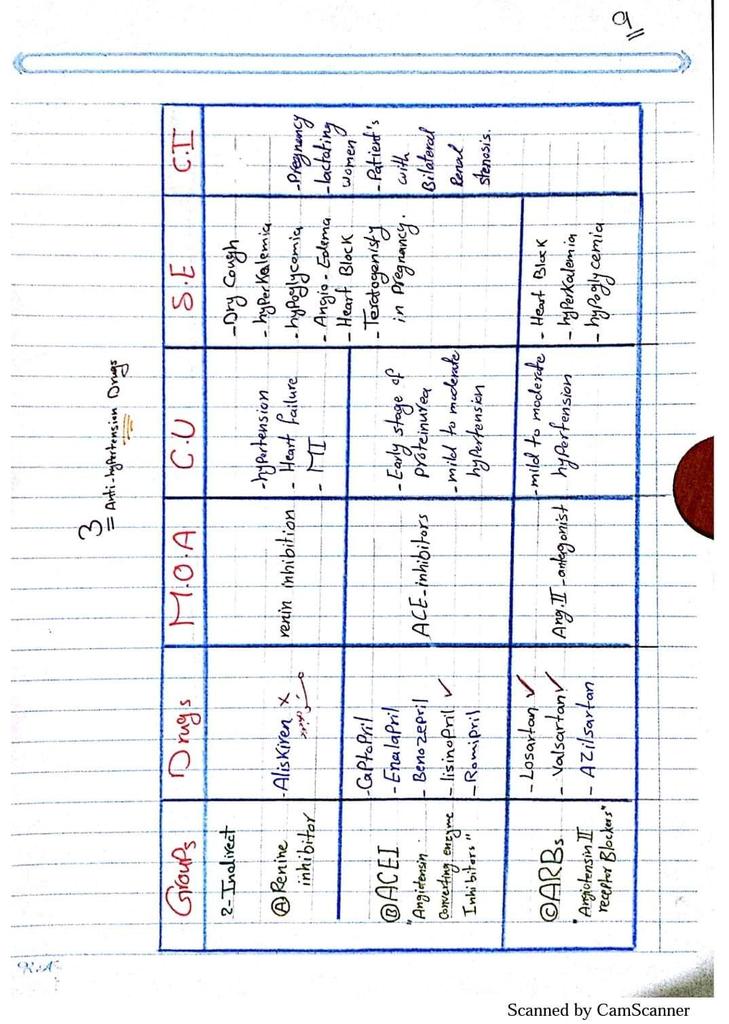 9
3 = Anti-hyPertension Drugs
GrouPs
Drugs
M.O.A
C.U
S.E
C.I
2-Indirect
Ⓐ Renine
inhibitor
- AlisKiren x
renin inhibition
-hyPertension
- Heart failure
- MI
- Dry Cough
- hyPerkalemia
- hyPoglycemia
- Angio-Edema
- Heart Block
- Teratogenisty
in Pregnancy.
- Pregnancy
- lactating
women
- Patient's
with
Bilateral
Renal
stenosis.
Ⓑ ACEI
"Angiotensin
Converting enzyme
Inhibitors"
- CaPtoPril
- EnalaPril
- BenazePril
- lisinoPril ✓
- RamiPril
ACE-inhibitors
- Early stage of
Proteinurea
- mild to moderate
hyPertension
Ⓒ ARBs
"Angiotensin II
recePtor Blockers"
- Losartan ✓
- Valsartan ✓
- AZilsartan
Ang.II-antagonist
- mild to moderate
hyPertension
- Heart Block
- hyPerKalemia
- hyPoglycemia
R.A
Scanned by CamScanner